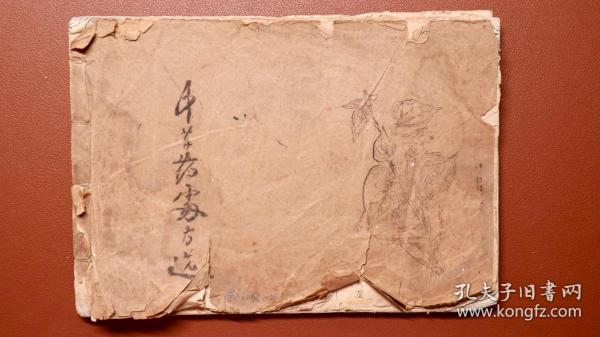 中草药处方选
孔夫子旧書网
www.kongfz.com